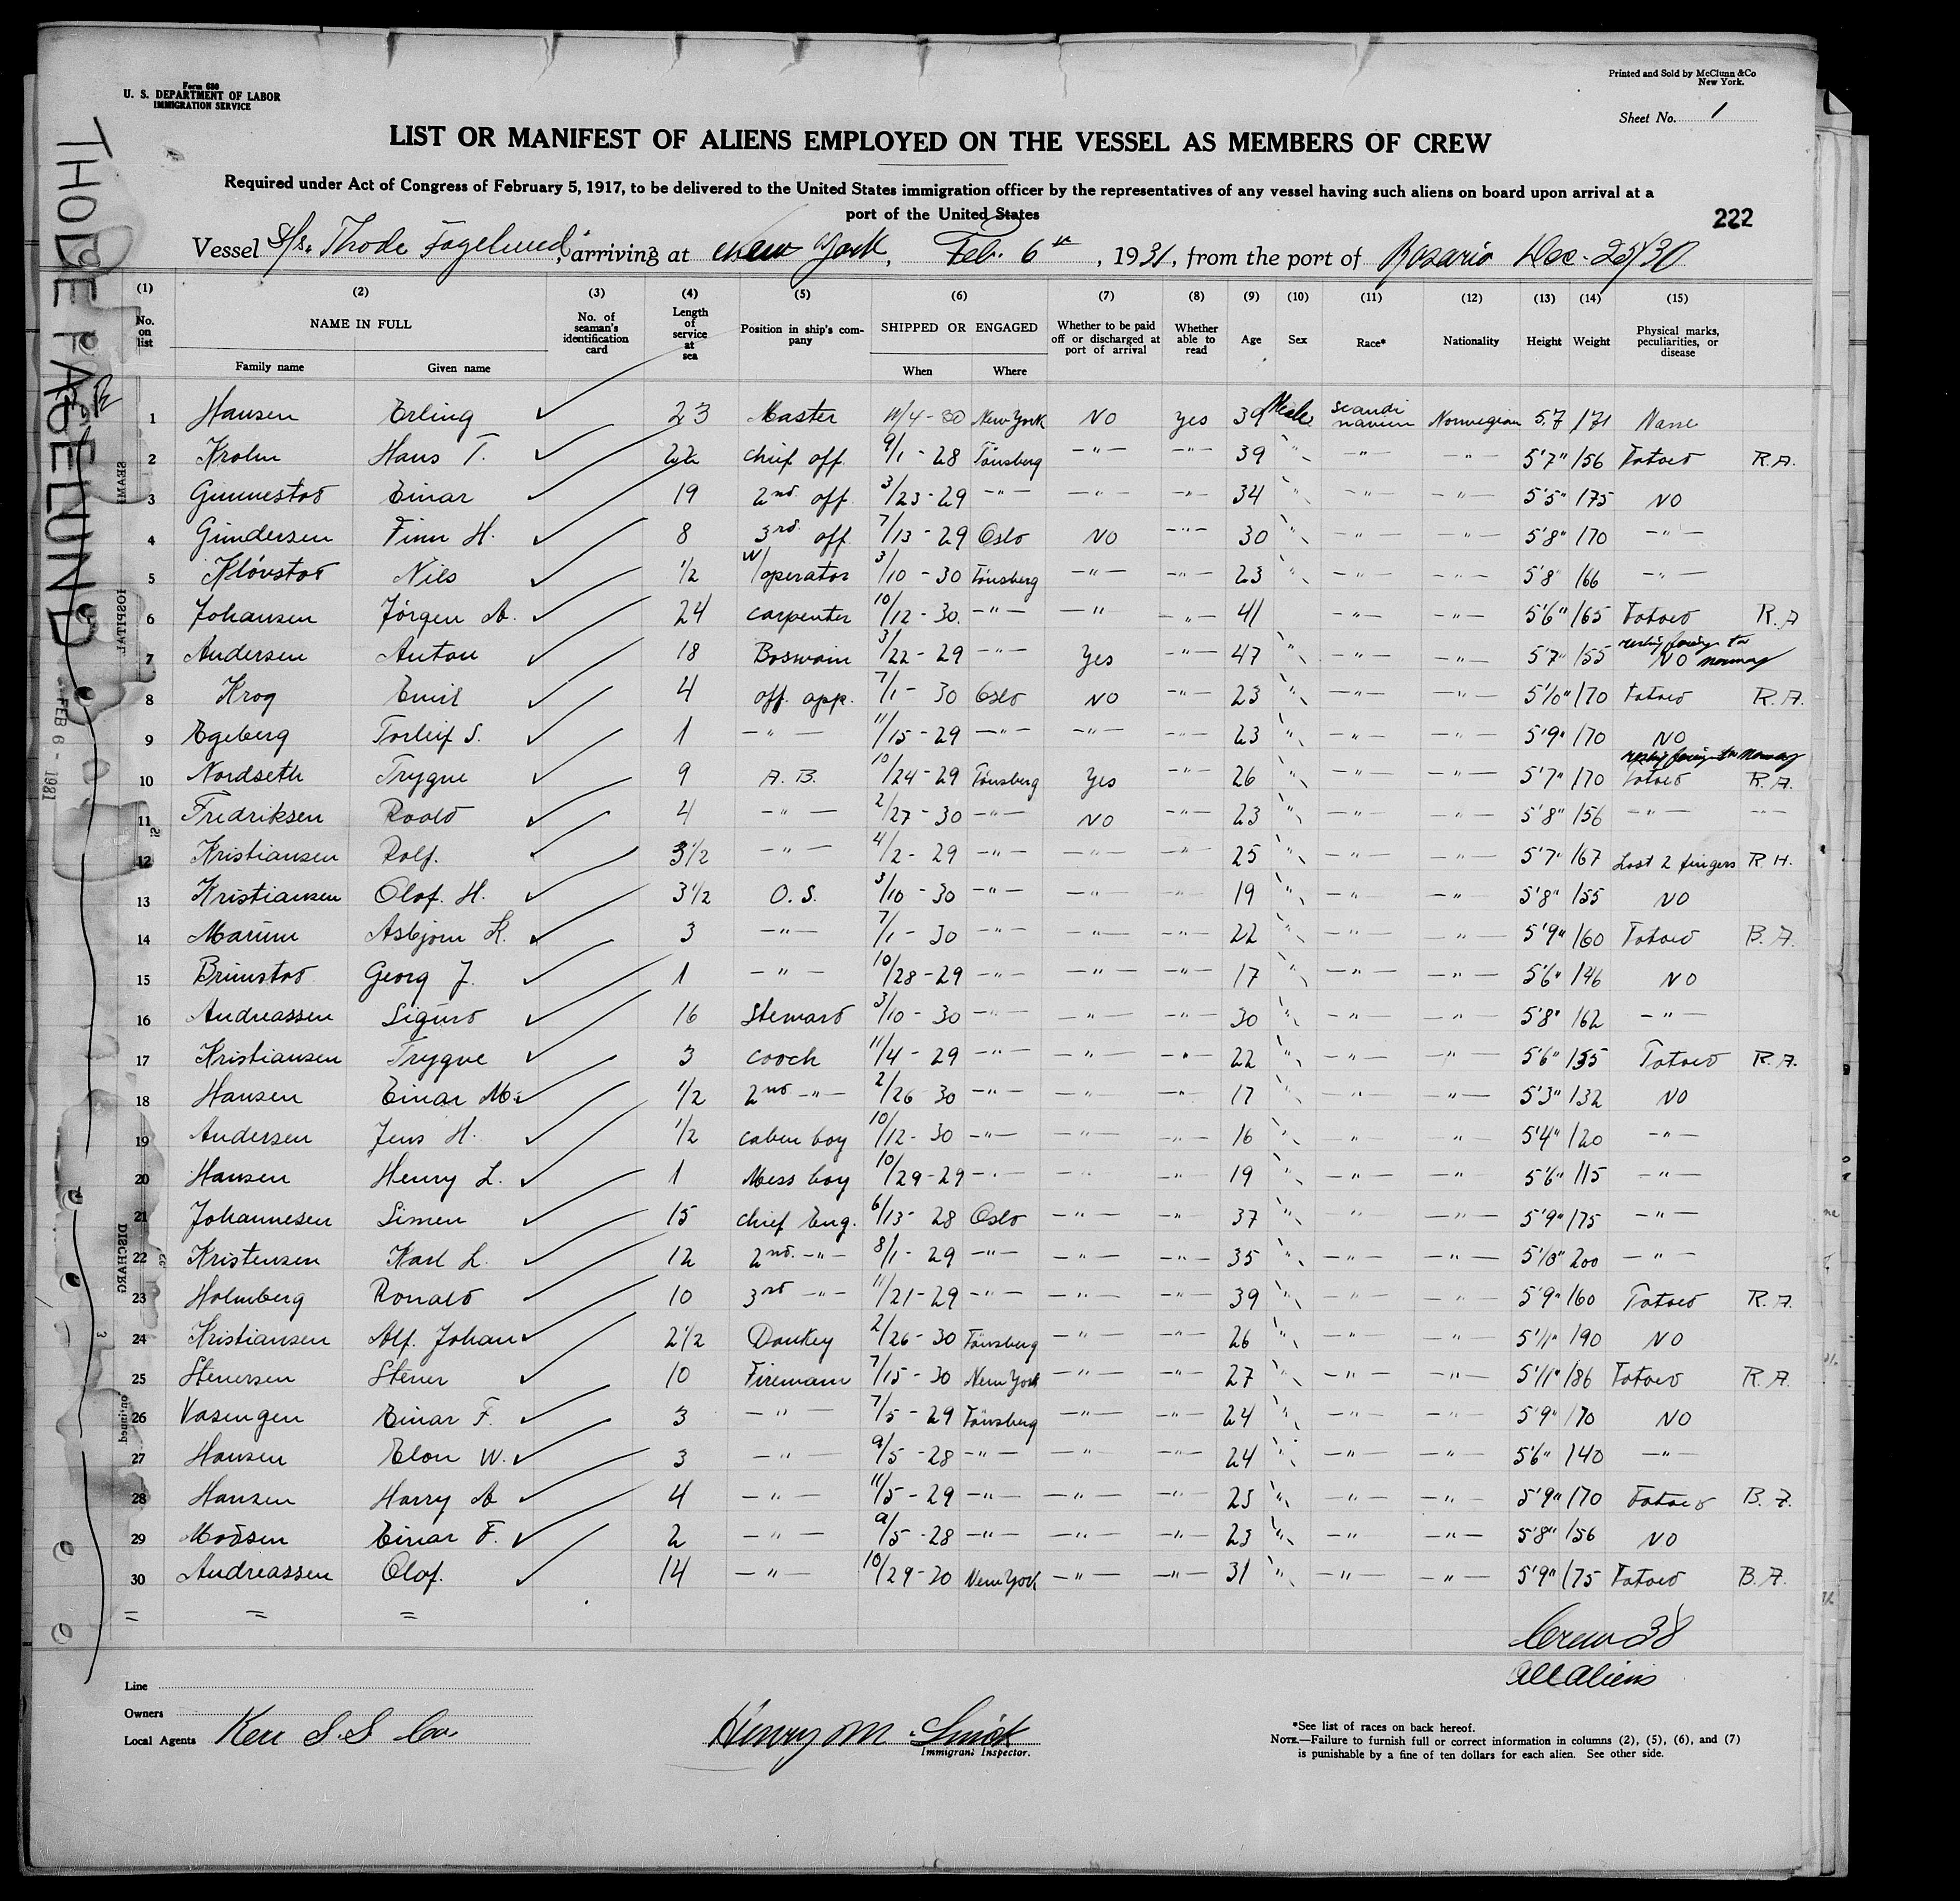 Form 680
U. S. DEPARTMENT OF LABOR
IMMIGRATION SERVICE
Printed and Sold by McClunn & Co
New York.
Sheet No. 1
LIST OR MANIFEST OF ALIENS EMPLOYED ON THE VESSEL AS MEMBERS OF CREW
Required under Act of Congress of February 5, 1917, to be delivered to the United States immigration officer by the representatives of any vessel having such aliens on board upon arrival at a
port of the United States
222
Vessel S/s. Thode Fagelund, arriving at New York, Feb. 6th, 1931, from the port of Rosario Dec. 25/30
THODE FAGELUND
FEB 6 - 1931
(1) (2) (3) (4) (5) (6) (7) (8) (9) (10) (11) (12) (13) (14) (15)
No. on list NAME IN FULL No. of seaman's identification card Length of service at sea Position in ship's company SHIPPED OR ENGAGED Whether to be paid off or discharged at port of arrival Whether able to read Age Sex Race* Nationality Height Weight Physical marks, peculiarities, or disease
Family name Given name When Where
1 Hansen Erling ✓ 23 Master 11/4-30 New York NO Yes 39 Male Scandinavien Norwegian 5,7 171 None
2 Krohn Hans T. ✓ 22 chief off. 9/1-28 Tönsberg -"- -"- 39 " -"- -"- 5'7" 156 Tatoed R.A.
3 Gunnestad Einar ✓ 19 2nd off. 3/23-29 -"- -"- -"- 34 " -"- -"- 5'5" 175 NO
4 Gundersen Finn H. ✓ 8 3rd off. 7/13-29 Oslo NO -"- 30 " -"- -"- 5'8" 170 -"-
5 Klövstad Nils ✓ 1/2 W/operator 3/10-30 Tönsberg -"- -"- 23 " -"- -"- 5'8" 166 -"-
6 Johansen Jörgen A. ✓ 24 carpenter 10/12-30. -"- -"- -"- 41 -"- -"- 5'6" 165 Tatoed R.A
7 Andersen Anton ✓ 18 Boswain 3/22-29 -"- Yes -"- 47 " -"- -"- 5'7" 155 NO
8 Krog Emil ✓ 4 off. app. 7/1-30 Oslo NO -"- 23 " -"- -"- 5'10" 170 tatoed R.A.
9 Egeberg Torleif S. ✓ 1 -"- 11/15-29 -"- -"- -"- 23 " -"- -"- 5'9" 170 NO
10 Nordseth Trygve ✓ 9 A.B. 10/24-29 Tönsberg Yes -"- 26 " -"- -"- 5'7" 170 Tatoed R.A.
11 Fredriksen Roald ✓ 4 -"- 2/27-30 -"- NO -"- 23 " -"- -"- 5'8" 156 -"- -"-
12 Kristiansen Rolf. ✓ 3 1/2 -"- 4/2-29 -"- -"- -"- 25 " -"- -"- 5'7" 167 Lost 2 fingers R.H.
13 Kristiansen Olof. H. ✓ 3 1/2 O.S. 3/10-30 -"- -"- -"- 19 " -"- -"- 5'8" 155 NO
14 Marum Asbjorn K. ✓ 3 -"- 7/1-30 -"- -"- -"- 22 " -"- -"- 5'9" 160 Tatoed B.A.
15 Brunstad Georg J. ✓ 1 -"- 10/28-29 -"- -"- -"- 17 " -"- -"- 5'6" 146 NO
16 Andreassen Sigurd ✓ 16 Steward 3/10-30 -"- -"- -"- 30 " -"- -"- 5'8" 162 -"-
17 Kristiansen Trygve ✓ 3 cooch 11/4-29 -"- -"- -"- 22 " -"- -"- 5'6" 155 Tatoed R.A.
18 Hansen Einar M. ✓ 1/2 2nd -"- 2/26-30 -"- -"- -"- 17 " -"- -"- 5'3" 132 NO
19 Andersen Jens H. ✓ 1/2 caben boy 10/12-30 -"- -"- -"- 16 " -"- -"- 5'4" 120 -"-
20 Hansen Henry L. ✓ 1 Mess boy 10/29-29 -"- -"- -"- 19 " -"- -"- 5'6" 115 -"-
21 Johannesen Simen ✓ 15 chief Eng. 6/13-28 Oslo -"- -"- 37 " -"- -"- 5'9" 175 -"-
22 Kristensen Karl L. ✓ 12 2nd. -"- 8/1-29 -"- -"- -"- 35 " -"- -"- 5'10" 200 -"-
23 Holmberg Ronald ✓ 10 3rd -"- 11/21-29 -"- -"- -"- 39 " -"- -"- 5'9" 160 Tatoed R.A.
24 Kristiansen Alf. Johan ✓ 2 1/2 Donkey 2/26-30 Tönsberg -"- -"- 26 " -"- -"- 5'11" 190 NO
25 Stenersen Stener ✓ 10 Firemann 7/15-30 New York -"- -"- 27 " -"- -"- 5'11" 186 Tatoed R.A.
26 Vasengen Einar F. ✓ 3 -"- 7/5-29 Tönsberg -"- -"- 24 " -"- -"- 5'9" 170 NO
27 Hansen Elon W. ✓ 3 -"- 9/5-28 -"- -"- -"- 24 " -"- -"- 5'6" 140 -"-
28 Hansen Harry A ✓ 4 -"- 11/5-29 -"- -"- -"- 25 " -"- -"- 5'9" 170 Tatoed B.A.
29 Madsen Einar F. ✓ 2 -"- 9/5-28 -"- -"- -"- 23 " -"- -"- 5'8" 156 NO
30 Andreassen Olof. ✓ 14 -"- 10/29-30 New York -"- -"- 31 " -"- -"- 5'9" 175 Tatoed B.A.
= = =
Crew 38
All Aliens
Line
Owners
Local Agents Kerr S.S Co.
Henry M.
Immigrant Inspector.
*See list of races on back hereof.
NOTE.—Failure to furnish full or correct information in columns (2), (5), (6), and (7)
is punishable by a fine of ten dollars for each alien. See other side.